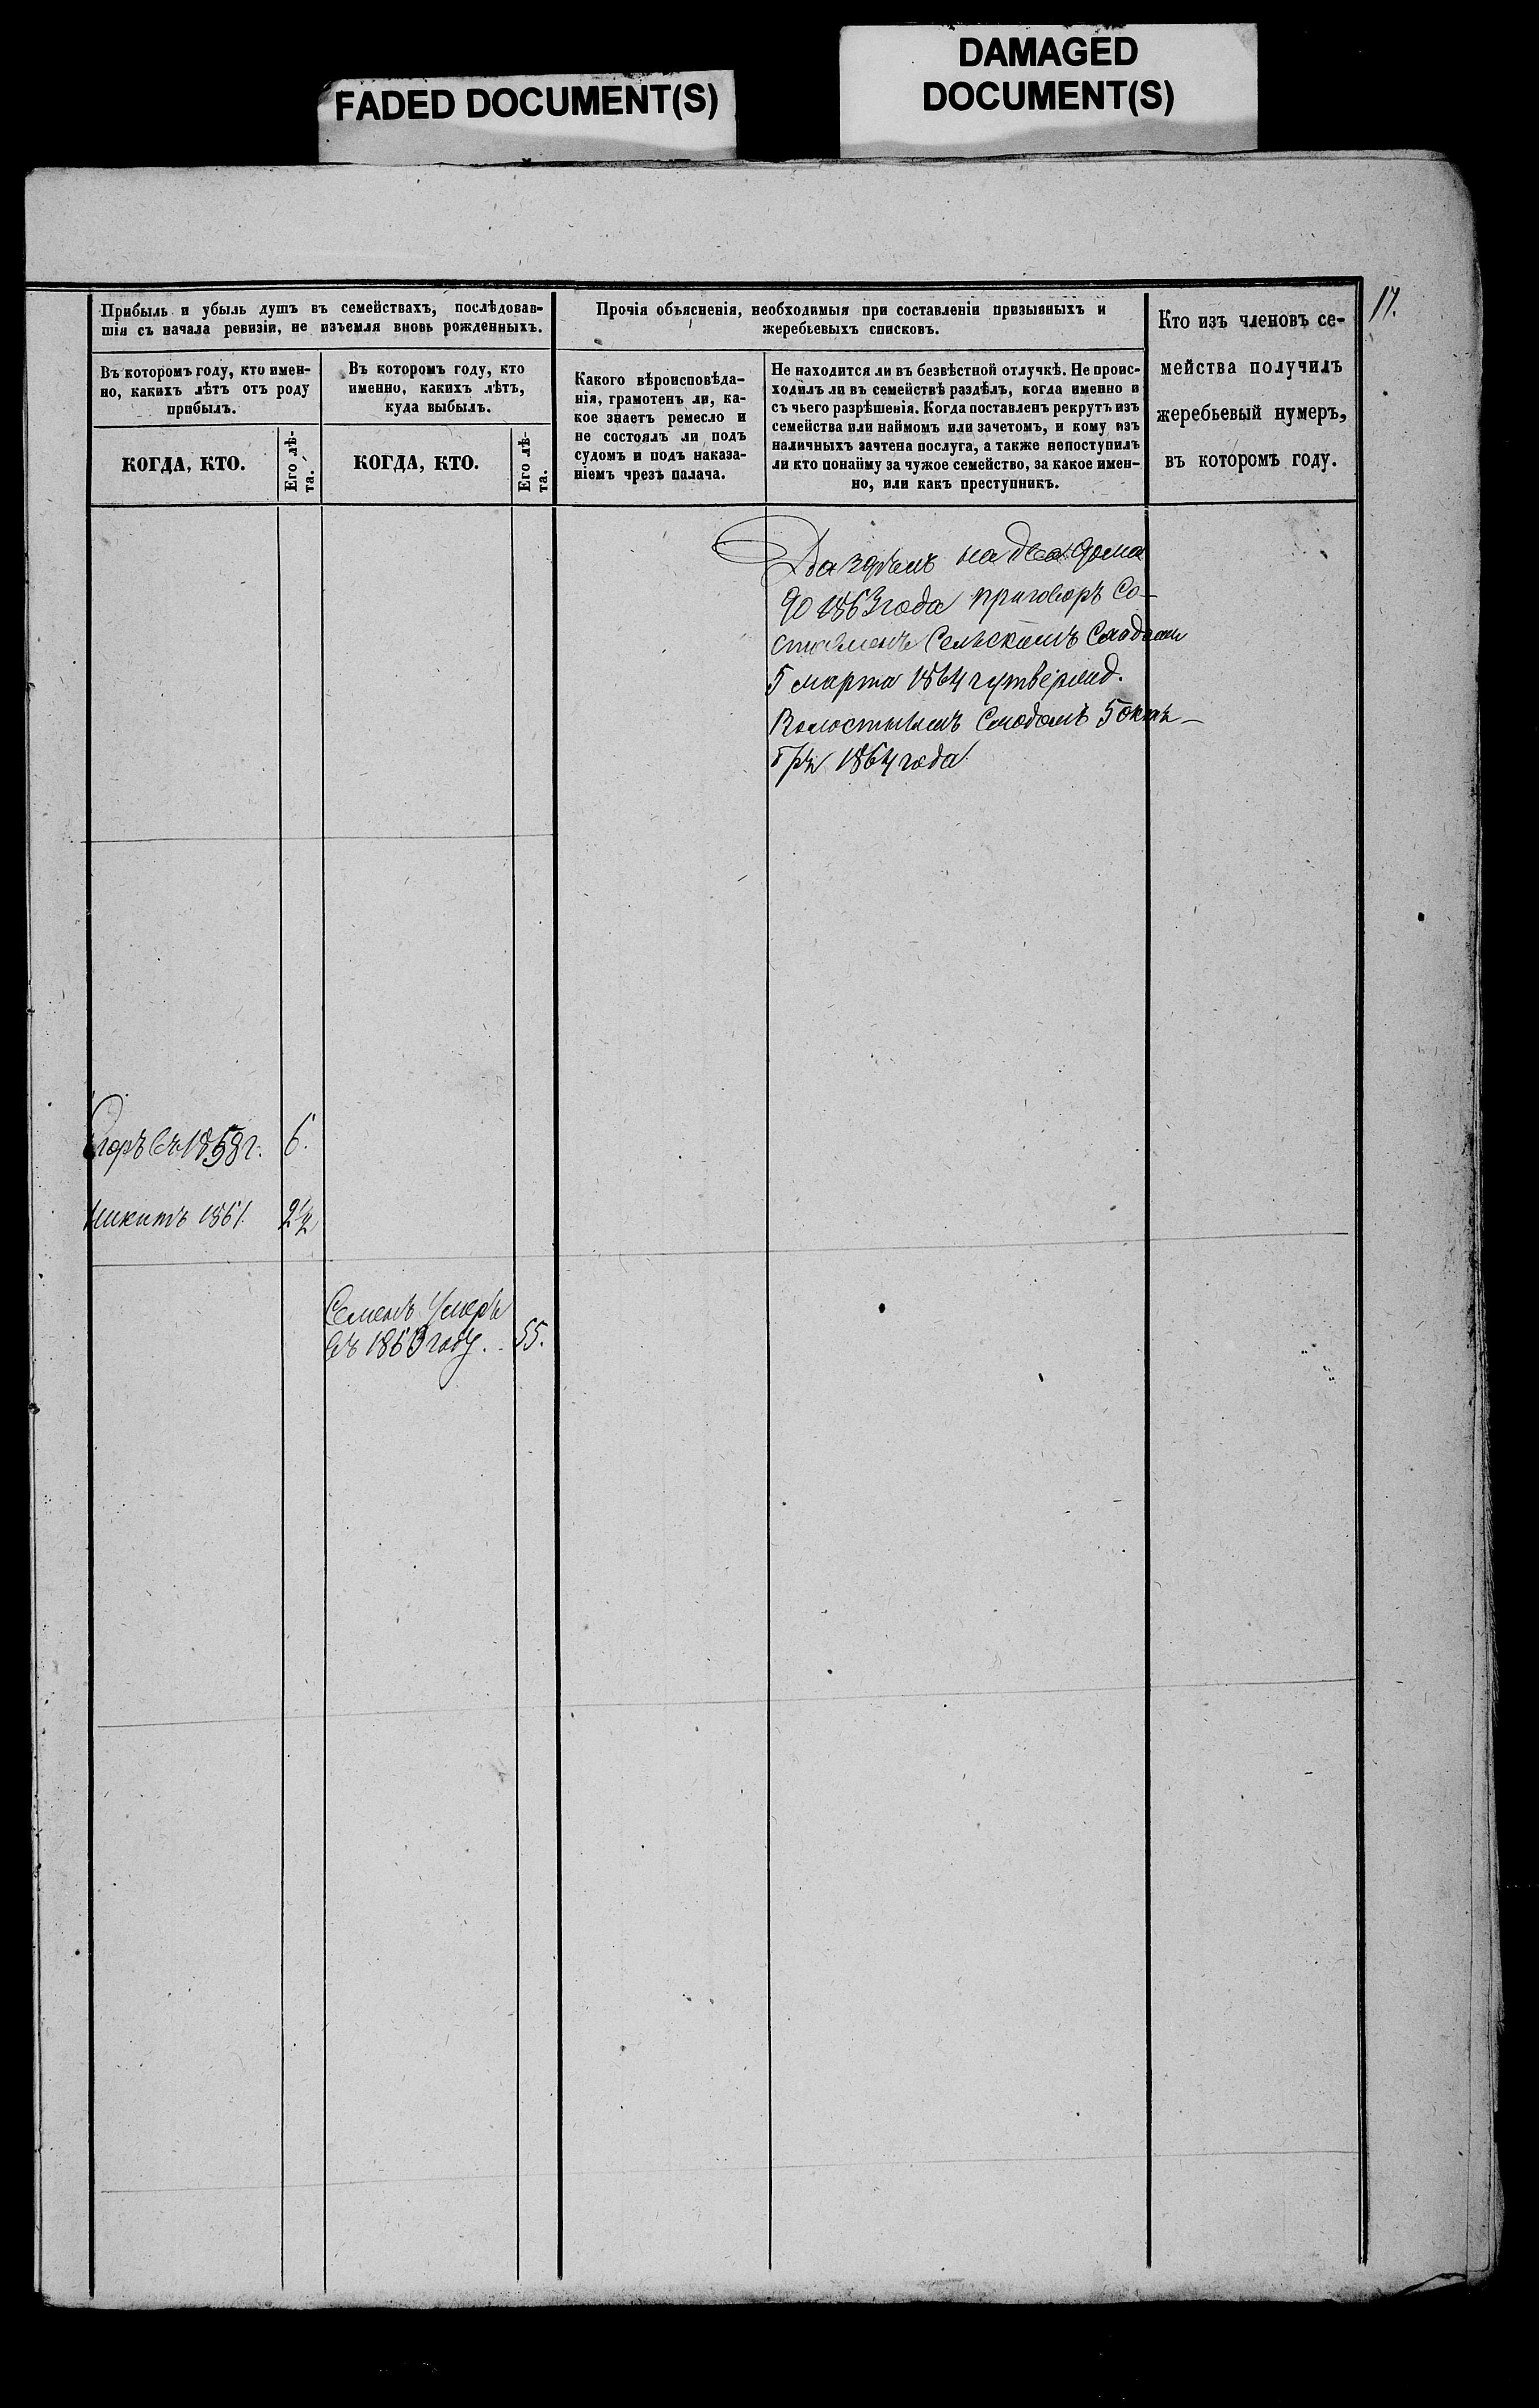 FADED DOCUMENT(S)
DAMAGED
DOCUMENT(S)
17.
Прибыль и убыль душъ въ семействахъ, послѣдовав-
шія съ начала ревизіи, не изъемля вновь рожденныхъ.
Въ которомъ году, кто имен-
но, какихъ лѣтъ отъ роду
прибылъ.
КОГДА, КТО.
Его лѣ-
та.
Въ которомъ году, кто
именно, какихъ лѣтъ,
куда выбылъ.
КОГДА, КТО.
Его лѣ-
та.
Прочія объясненія, необходимыя при составленіи призывныхъ и
жеребьевыхъ списковъ.
Какого вѣроисповѣда-
нія, грамотенъ ли, ка-
кое знаетъ ремесло и
не состоялъ ли подъ
судомъ и подъ наказа-
ніемъ чрезъ палача.
Не находится ли въ безвѣстной отлучкѣ. Не проис-
ходилъ ли въ семействѣ раздѣлъ, когда именно и
съ чьего разрѣшенія. Когда поставленъ рекрутъ изъ
семейства или наймомъ или зачетомъ, и кому изъ
наличныхъ зачтена послуга, а также непоступилъ
ли кто понайму за чужое семейство, за какое имен-
но, или какъ преступникъ.
Кто изъ членовъ се-
мейства получилъ
жеребьевый нумеръ,
въ которомъ году.
Раздѣлъ на два дома
до 1863 года приговоръ Со-
ставленъ Сельскимъ Сходомъ
5 марта 1864 г утвержд.
Волостнымъ Сходомъ 5 октя-
бря 1864 года
Егоръ въ 1858 г. 6.
Никита 1861 2 1/2
Семенъ Умеръ
въ 1863 году. 55.